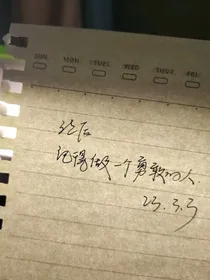 SUN. MON. TUES. WED. THUR. FRI.
往后
记得做一个勇敢的人
23.3.3